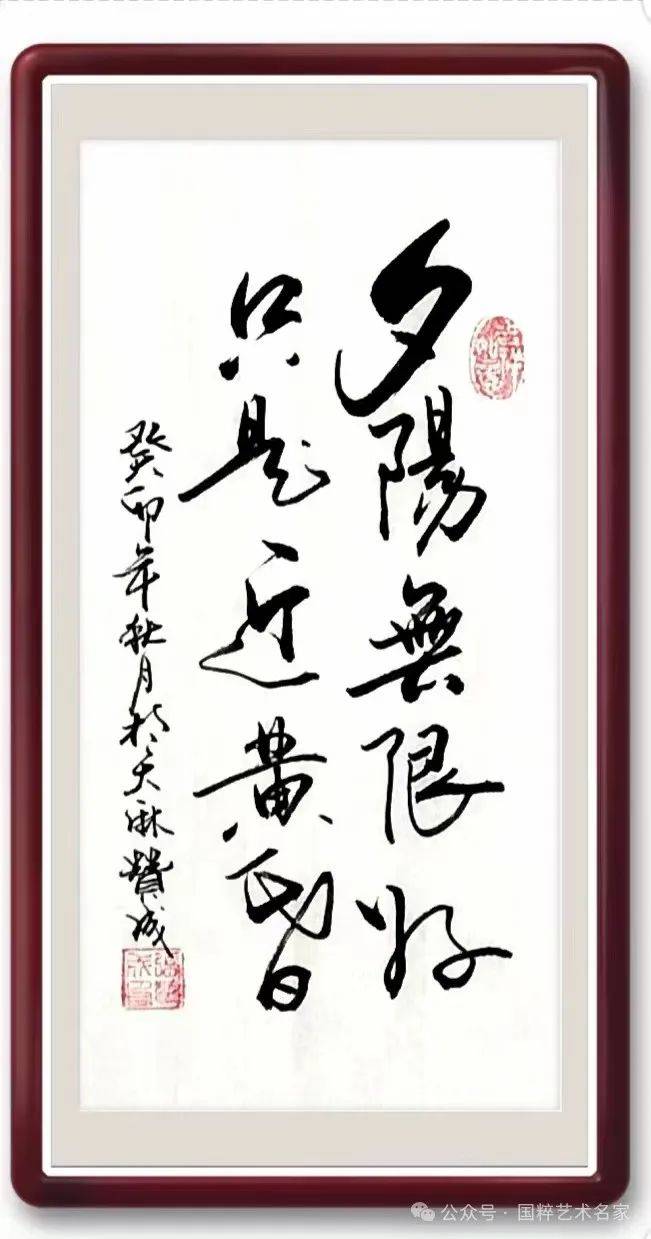 夕陽無限好
只是近黄昏
癸卯年秋月於天水賛成
公众号·国粹艺术名家